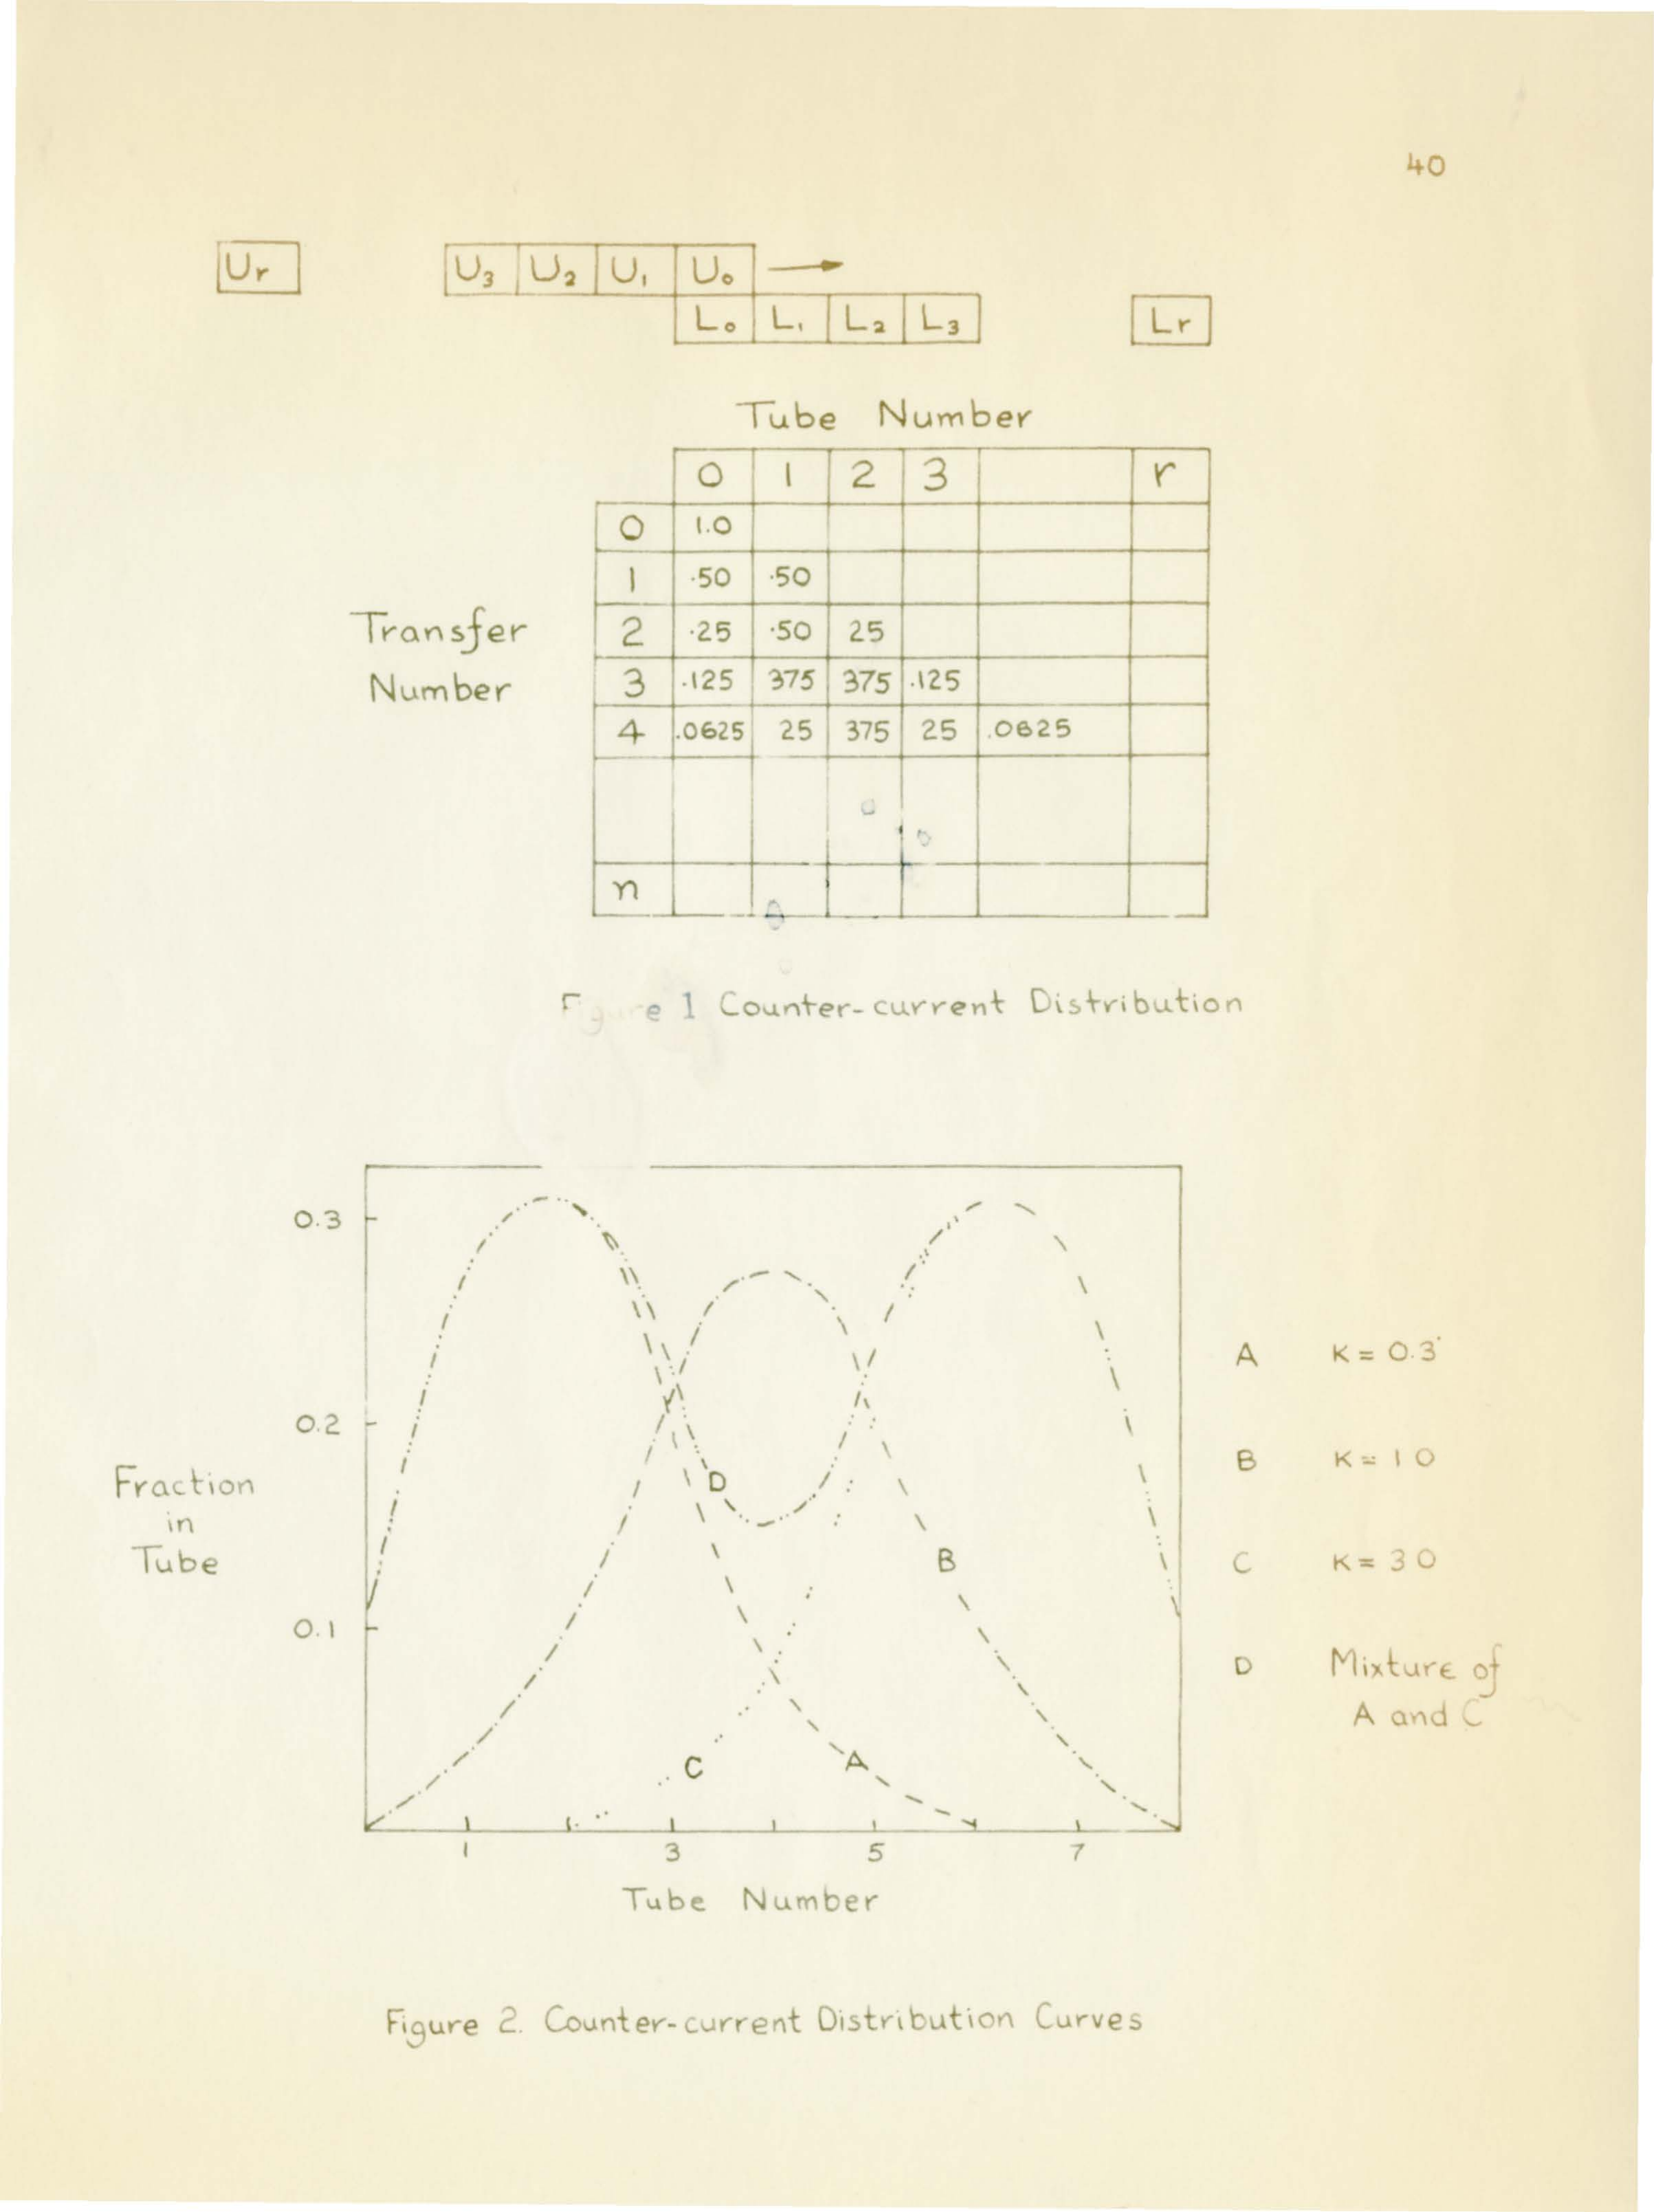 40
Ur U3 U2 U1 U0
L0 L1 L2 L3 Lr
Tube Number
0 1 2 3 r
0 1.0
1 .50 .50
2 .25 .50 25
3 .125 375 375 .125
4 .0625 25 375 25 .0625
n
Transfer
Number
Figure 1 Counter-current Distribution
0.3
0.2
0.1
Fraction
in
Tube
D
B
C
A
1 3 5 7
Tube Number
A K = 0.3
B K = 1 0
C K = 3 0
D Mixture of
A and C
Figure 2. Counter-current Distribution Curves